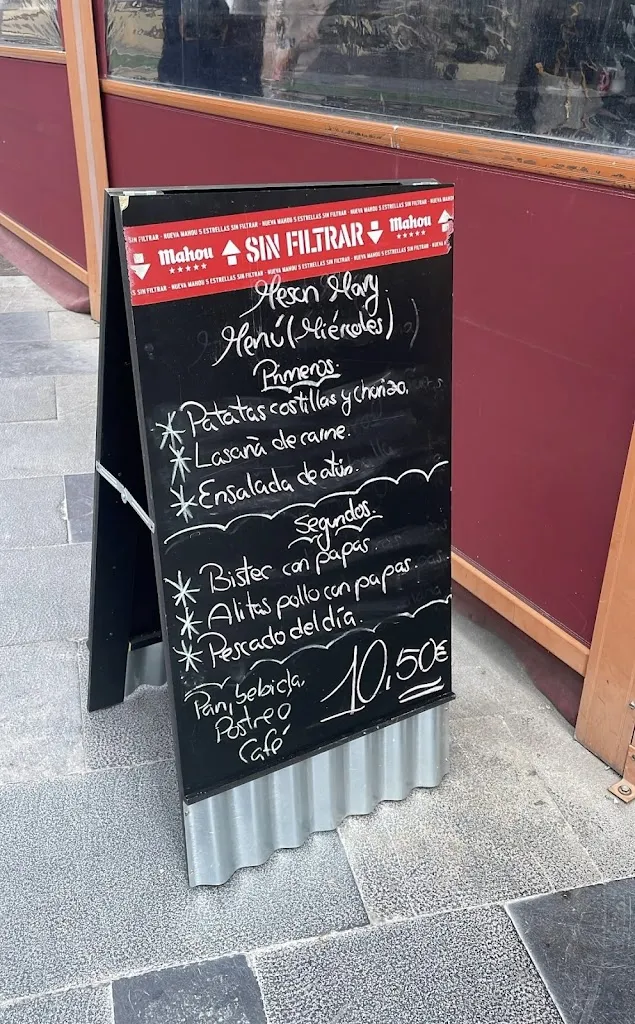 SIN FILTRAR - NUEVA MAHOU 5 ESTRELLAS SIN FILTRAR - NUEVA MAHOU 5 ESTRELLAS SIN FILTRAR - NUEVA MAHOU 5 ESTRELLAS SIN FILTRAR - NUEVA
Mahou SIN FILTRAR Mahou
S SIN FILTRAR - NUEVA MAHOU 5 ESTRELLAS SIN FILTRAR - NUEVA MAHOU 5 ESTRELLAS SIN FILTRAR - NUEVA MAHOU 5 ESTRELLAS SIN FILTRAR
Meson Mary
Menú (Miércoles)
Primeros.
* Patatas costillas y chorizo.
* Lasaña de carne.
* Ensalada de atún.
Segundos.
* Bistec con papas.
* Alitas pollo con papas.
* Pescado del día.
Pan, bebida,
Postre o
Café
10,50€